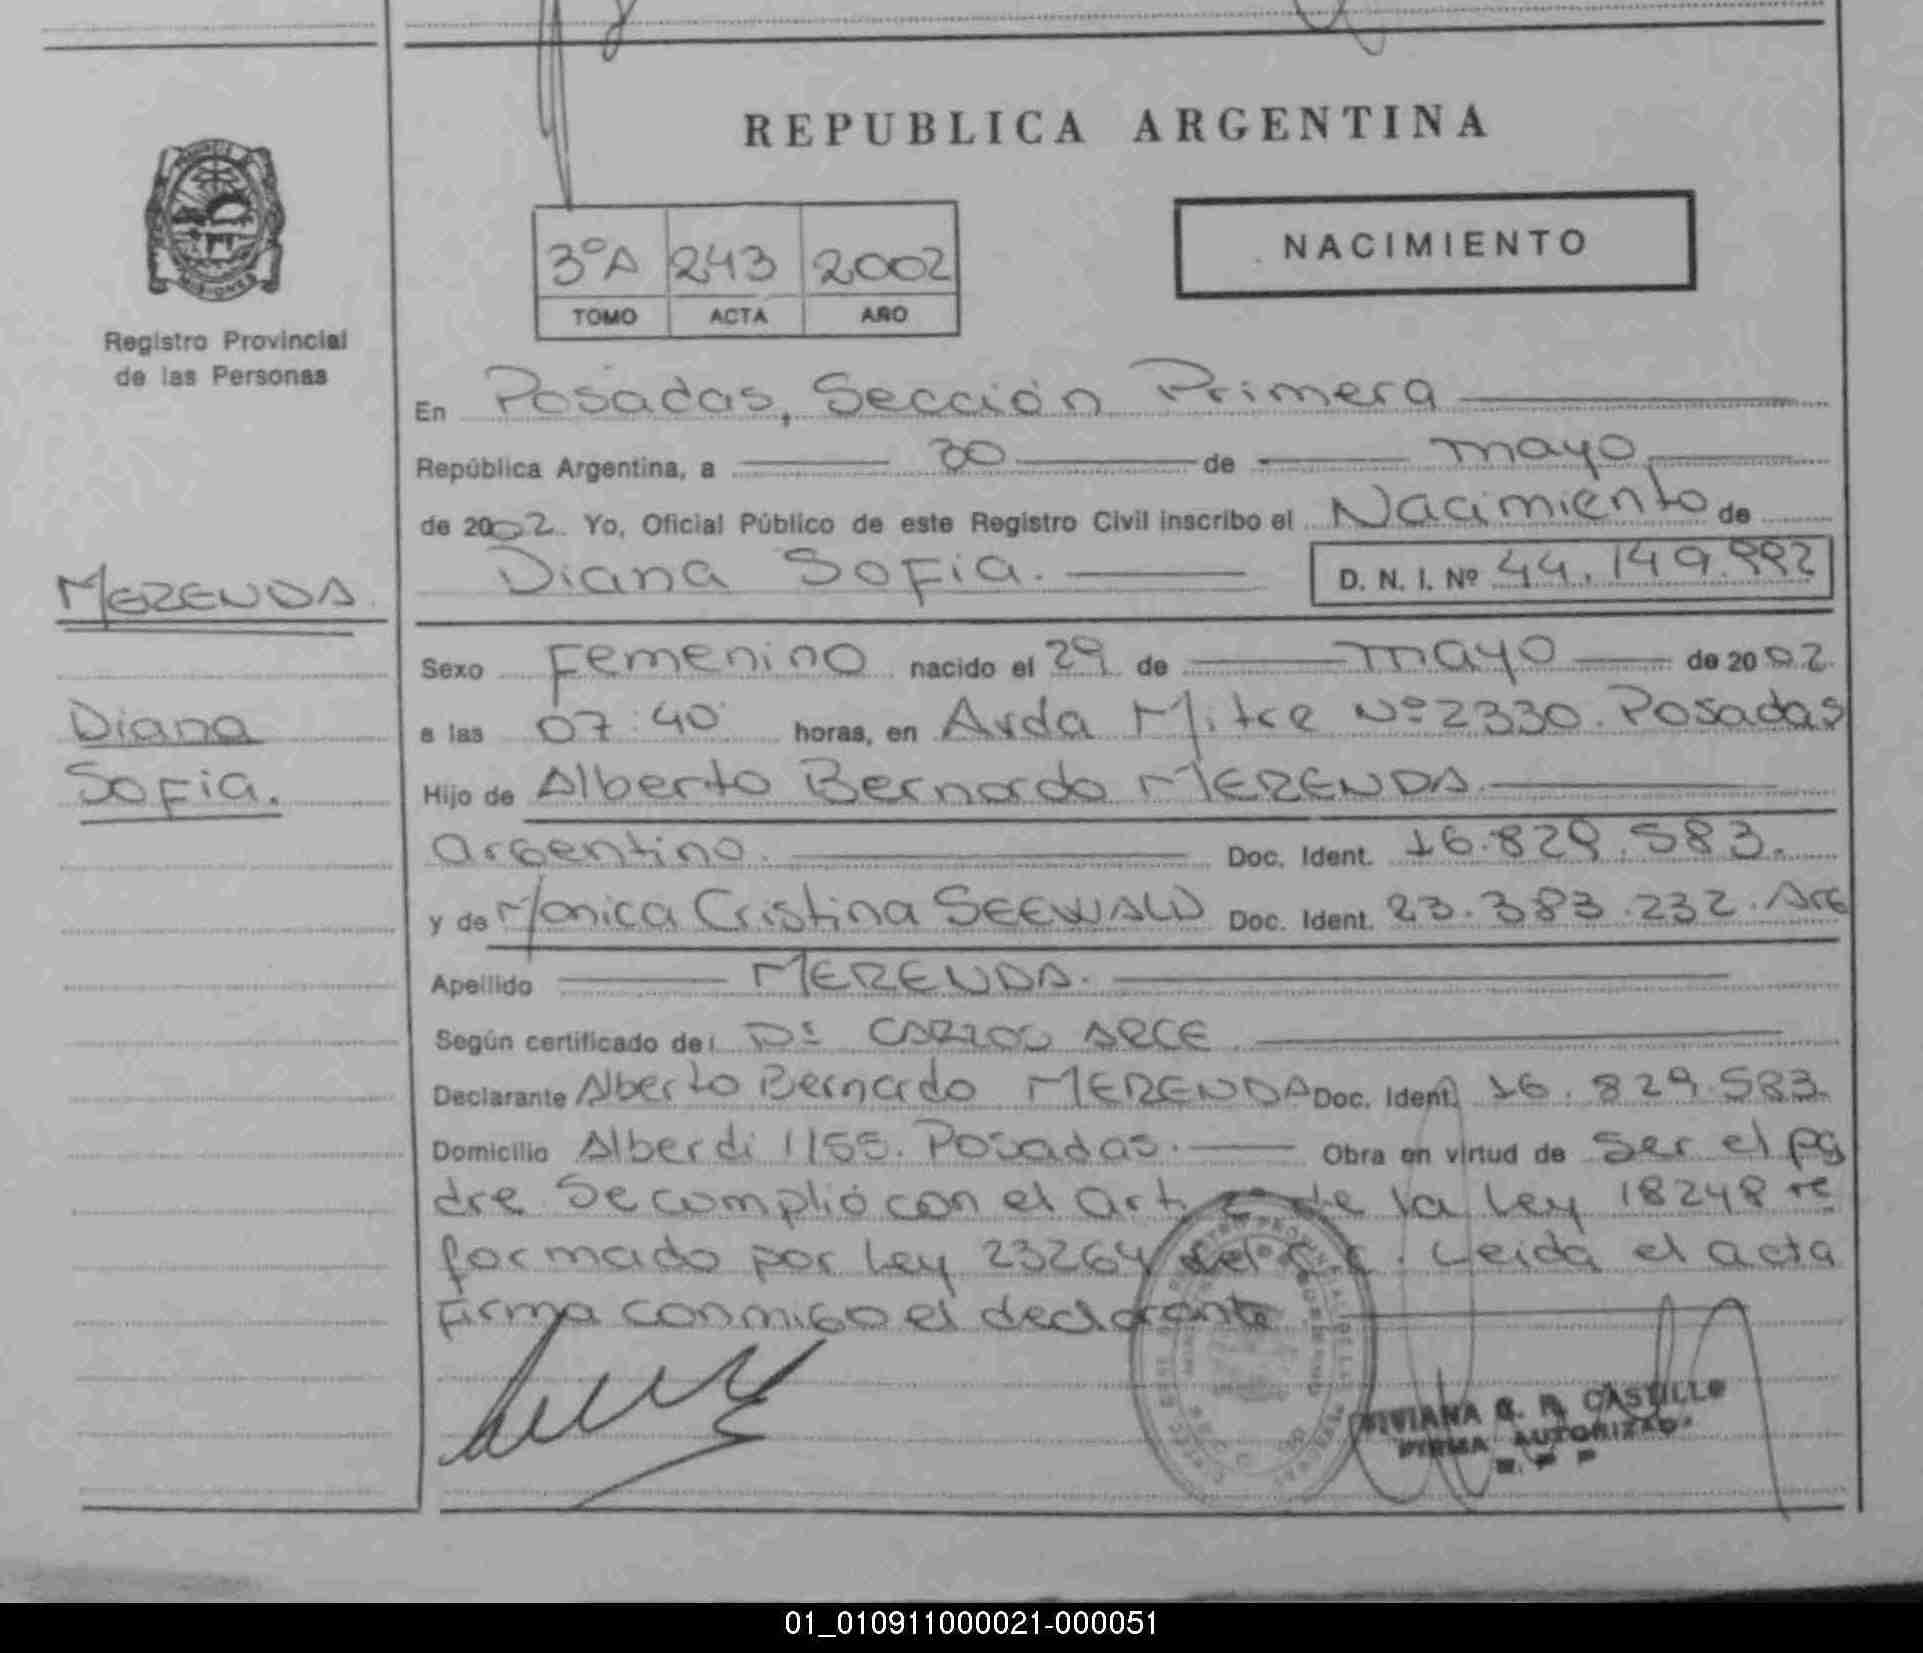 REPUBLICA ARGENTINA
MISIONES
Registro Provincial
de las Personas
3°A 243 2002
TOMO ACTA AÑO
NACIMIENTO
En Posadas, Sección Primera
República Argentina, a 30 de mayo
de 2002. Yo, Oficial Público de este Registro Civil inscribo el Nacimiento de
Diana Sofia. D. N. I. Nº 44.149.992
MERENDA
Sexo Femenino nacido el 29 de mayo de 2002.
Diana
a las 07:40 horas, en Avda Mitre Nº 2330. Posadas
Sofia.
Hijo de Alberto Bernardo MERENDA
Argentino. Doc. Ident. 16.829.583.
y de Monica Cristina SEEWALD Doc. Ident. 23.383.232. Arg
Apellido MERENDA.
Según certificado de: Dr CARLOS ARCE
Declarante Alberto Bernardo MERENDA Doc. Ident. 16.829.583.
Domicilio Alberdi 1155. Posadas. Obra en virtud de ser el pa
dre Se cumplió con el art. 2º de la ley 18248 re
formado por ley 23264 del C.C. Leida el acta
firma conmigo el declarante
VIVIANA G. R. CASTILLO
FIRMA AUTORIZAD
01_010911000021-000051